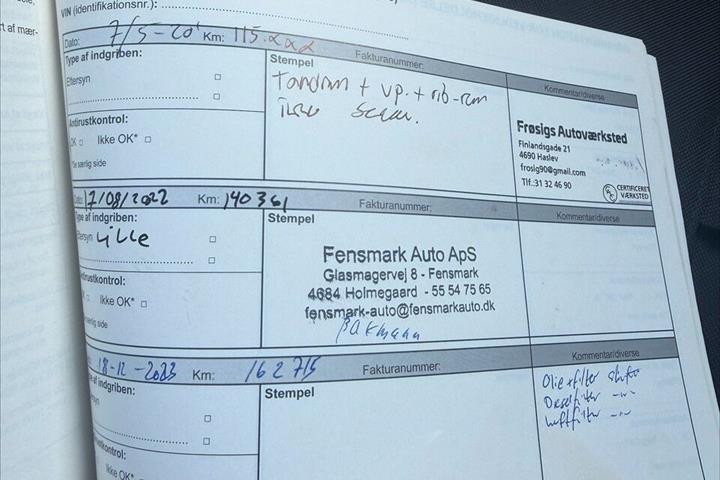 t af mær-
VIN (identifikationsnr.):
Dato: 7/5-20 Km: 115.xxx Fakturanummer: Kommentar/diverse
Type af indgriben:
Eftersyn
Antirustkontrol:
OK Ikke OK*
*Se særlig side
Stempel
Tandrem + vp. + rib-rem
Frøsigs Autoværksted
Finlandsgade 21
4690 Haslev
frosig90@gmail.com
Tlf.:31 32 46 90
CERTIFICERET
VÆRKSTED
17/08/2022 Km: 140361 Fakturanummer: Kommentar/diverse
Type af indgriben:
Eftersyn Lille
Antirustkontrol:
Ikke OK*
særlig side
Stempel
Fensmark Auto ApS
Glasmagervej 8 - Fensmark
4684 Holmegaard - 55 54 75 65
fensmark-auto@fensmarkauto.dk
18-12-2023 Km: 162715 Fakturanummer: Kommentar/diverse
Type af indgriben:
Eftersyn
Antirustkontrol:
Ikke OK*
Stempel
Olie+filter skiftet
Dieselfilter -"-
Luftfilter -"-